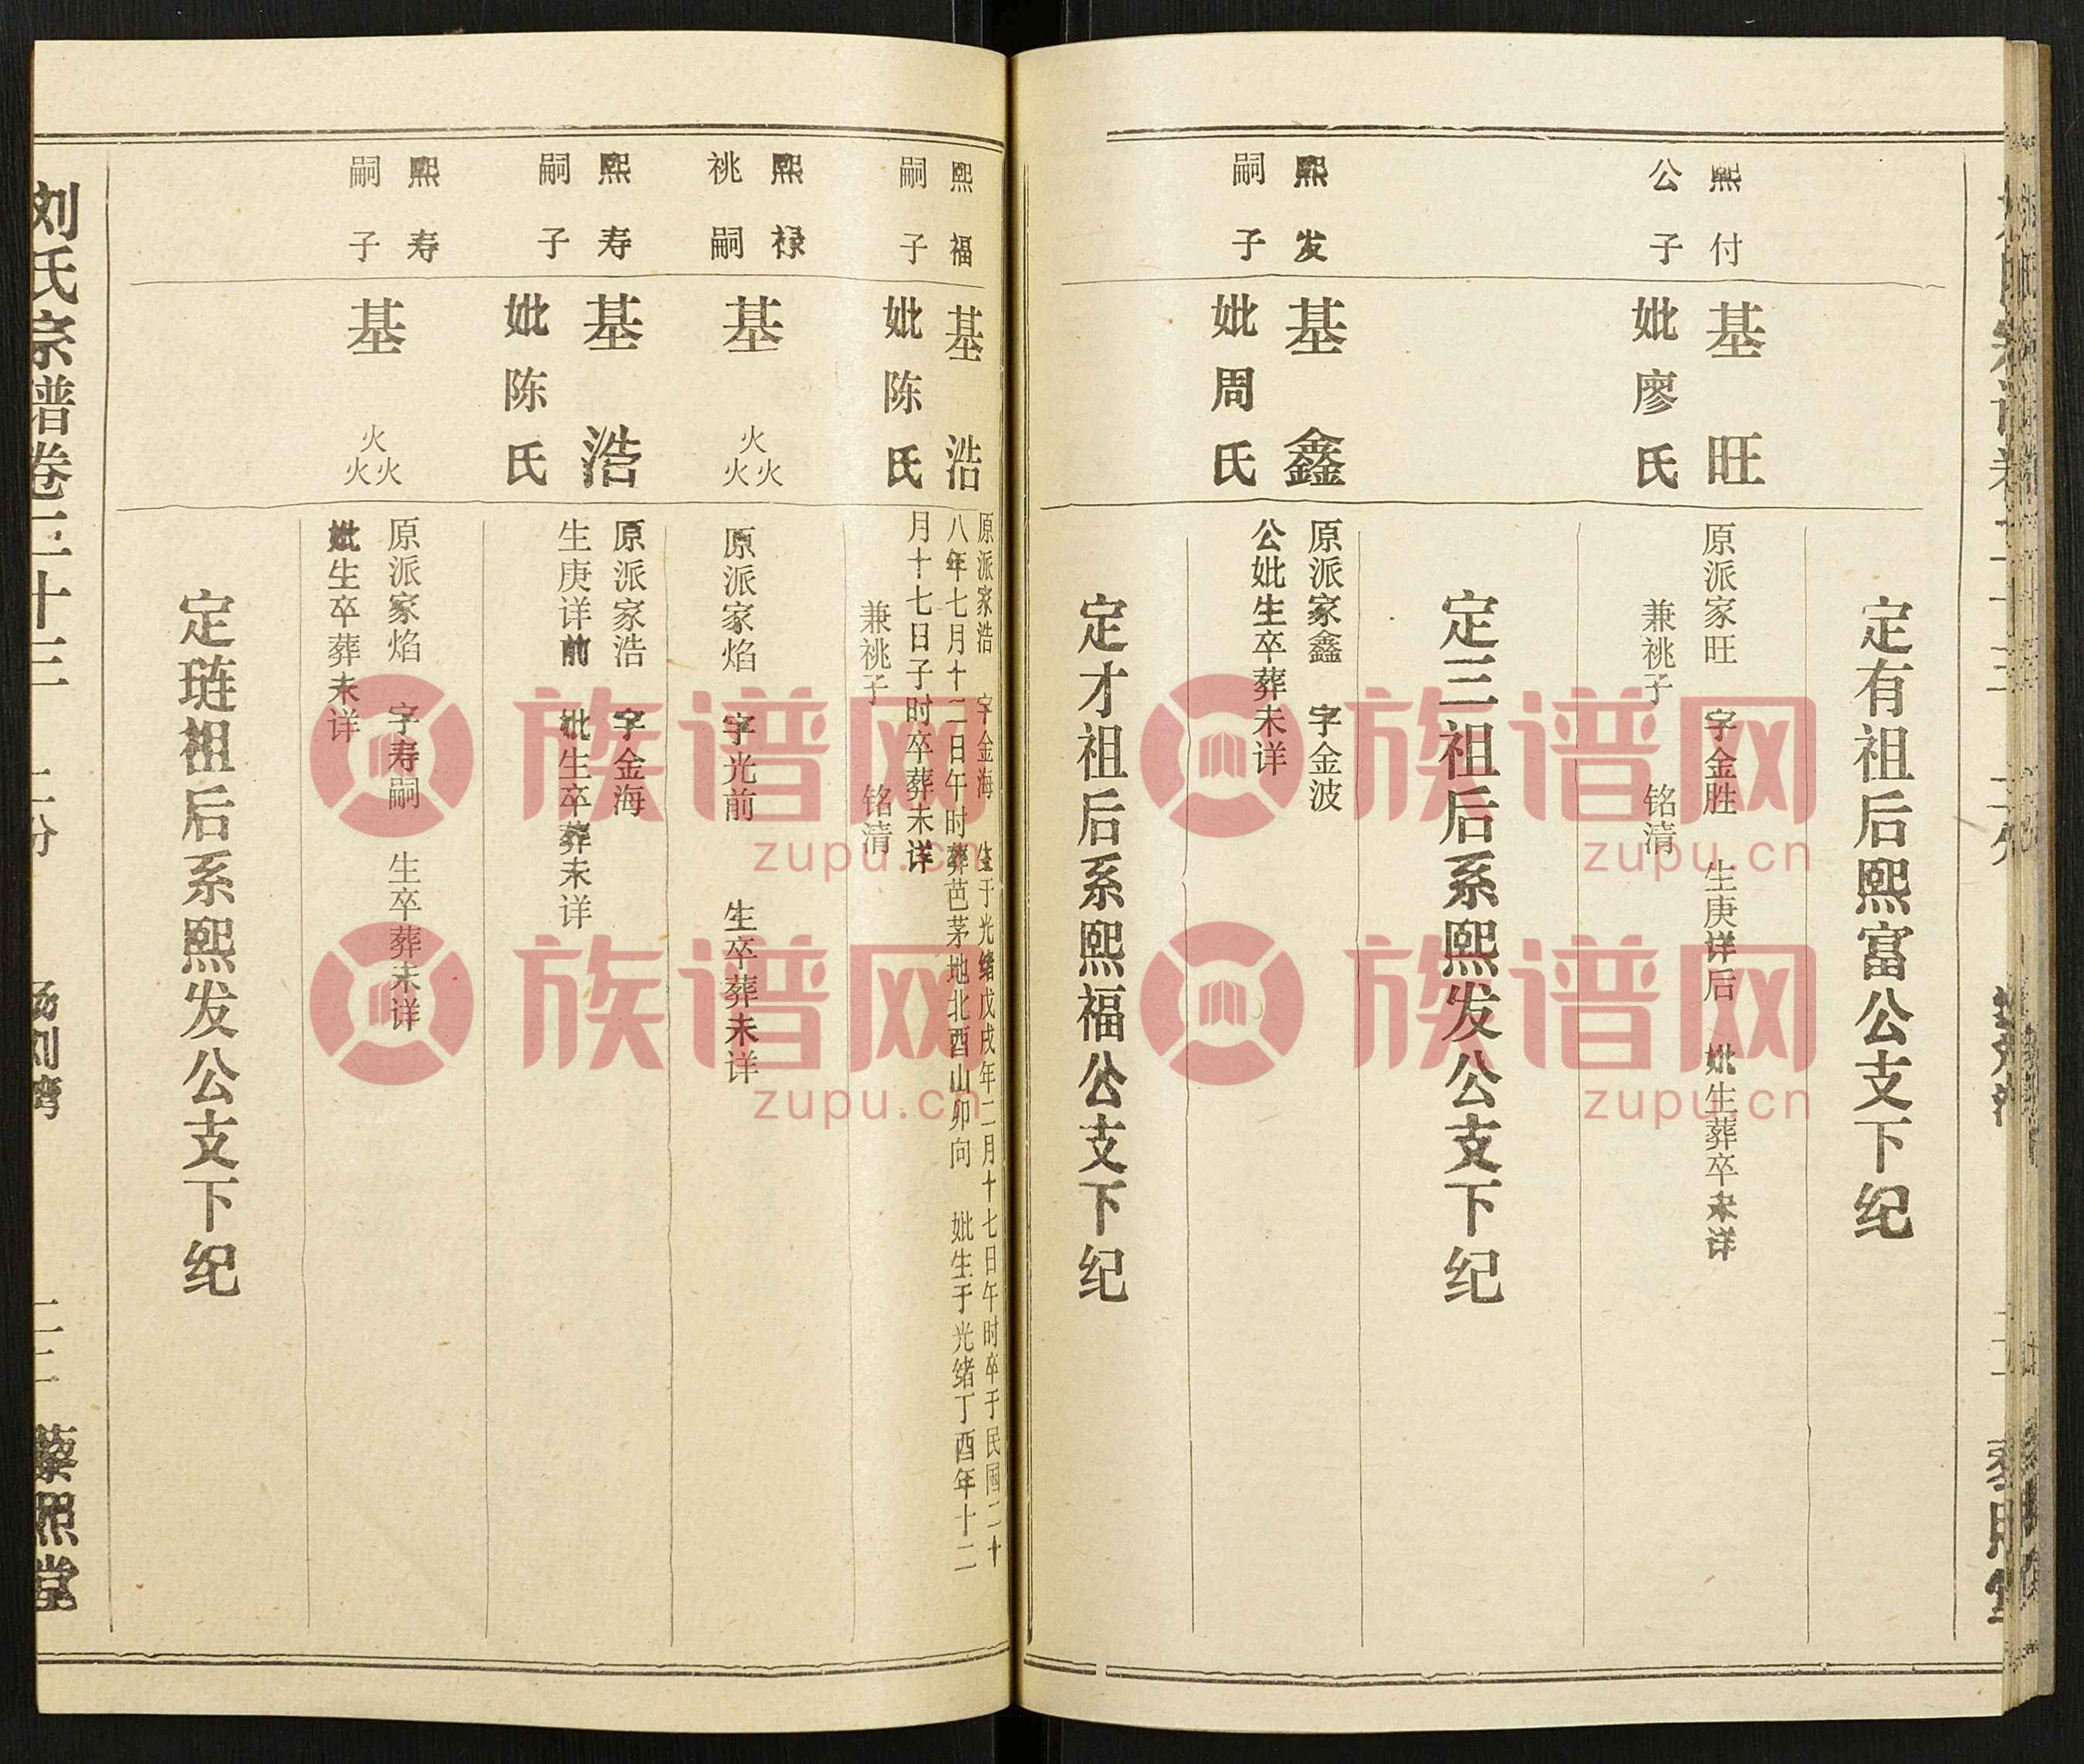 定有祖后熙富公支下纪
熙付
公子
基旺
妣廖氏
原派家旺 字金胜 生庚详后 妣生葬卒未详
兼祧子 铭清
定三祖后系熙发公支下纪
熙发
嗣子
基鑫
妣周氏
原派家鑫 字金波
公妣生卒葬未详
定才祖后系熙福公支下纪
熙福
嗣子
基浩
妣陈氏
原派家浩 字金海 生于光绪戊戌年二月十七日午时卒于民国二十
八年七月十二日午时葬芭茅地北酉山卯向 妣生于光绪丁酉年十二
月十七日子时卒葬未详
兼祧子 铭清
熙禄
祧嗣
基焱
原派家焰 字光前 生卒葬未详
熙寿
嗣子
基浩
妣陈氏
原派家浩 字金海
生庚详前 妣生卒葬未详
熙寿
嗣子
基焱
原派家焰 字寿嗣 生卒葬未详
妣生卒葬未详
定琏祖后系熙发公支下纪
刘氏宗谱卷三十三 二分 杨刘湾 藜照堂
族谱网
zupu.cn
族谱网
zupu.cn
族谱网
zupu.cn
族谱网
zupu.cn